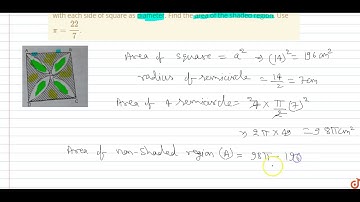 with each side of square as diameter. Find the area of the shaded region. Use
π = 22/7.
Area of square = a² → (14)² = 196 cm²
radius of semicircle = 14/2 = 7cm
Area of 4 semicircle = 4 × π/2 (7)²
⇒ 2π × 49 = 98π cm²
Area of non-shaded region (A) = 98π - 196